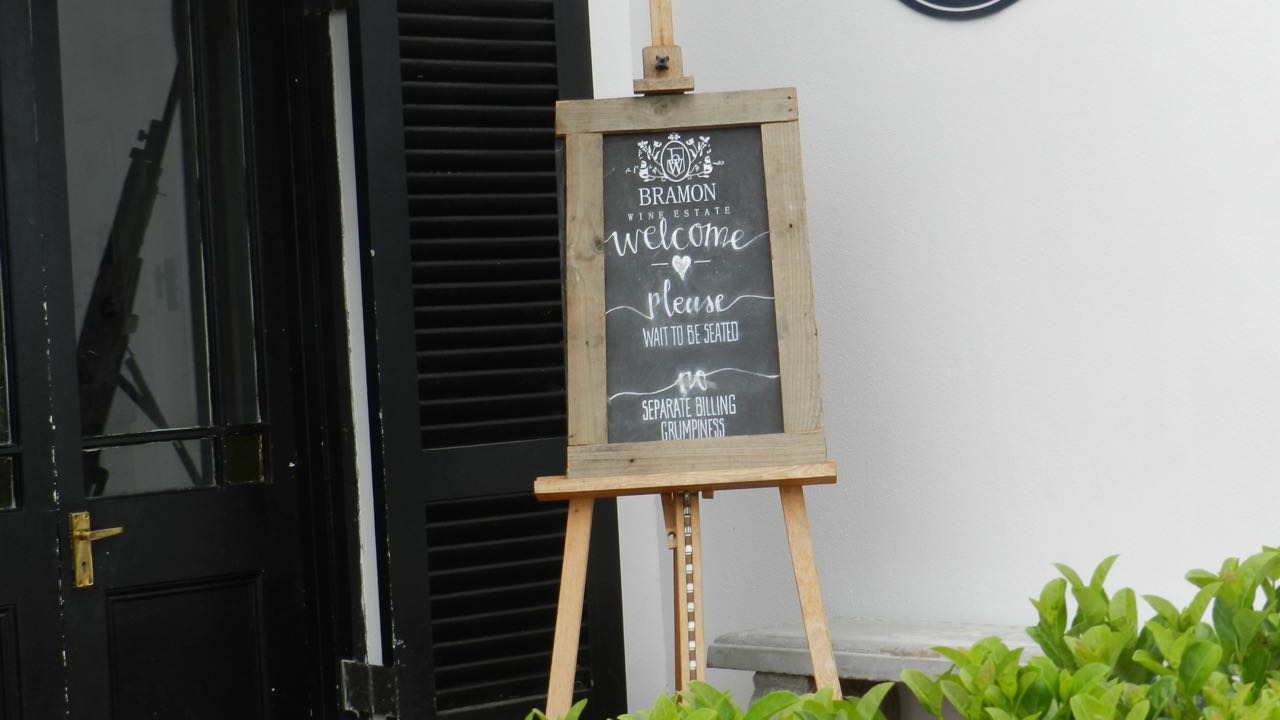 BRAMON
WINE ESTATE
welcome
please
WAIT TO BE SEATED
no
SEPARATE BILLING
GRUMPINESS